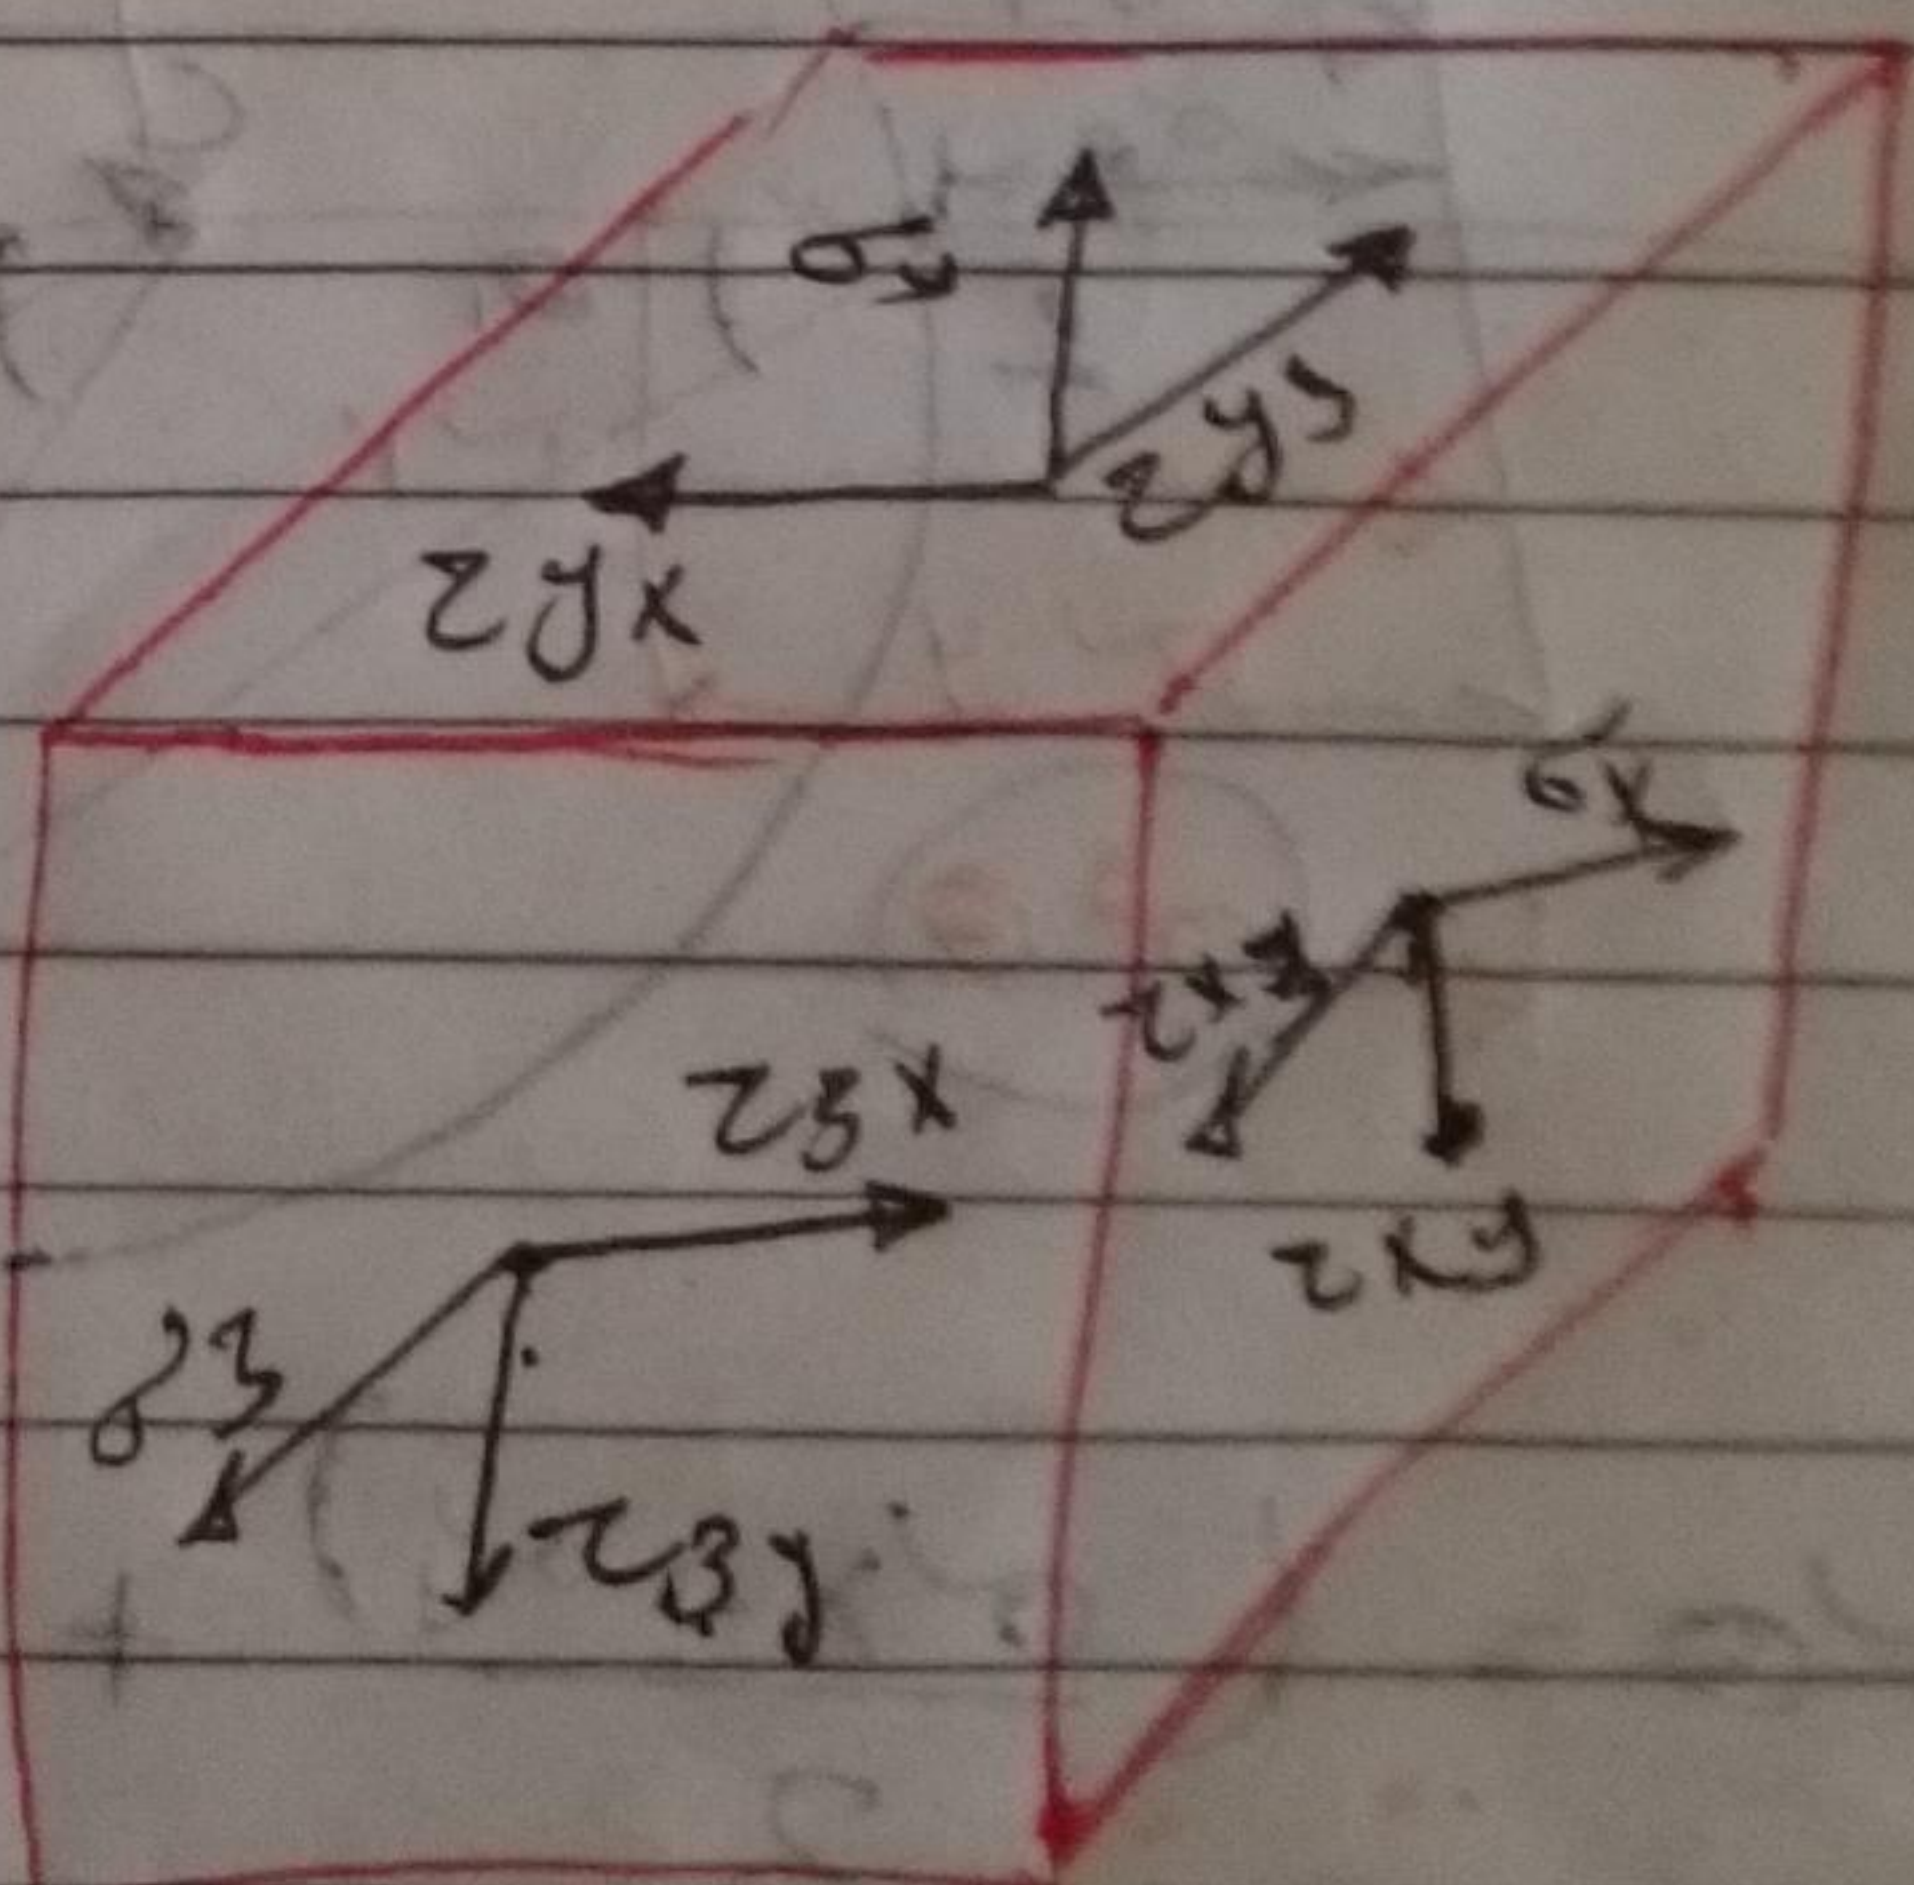 σy
τyz
τyx
σx
τxz
τzx
τxy
σz
τzy